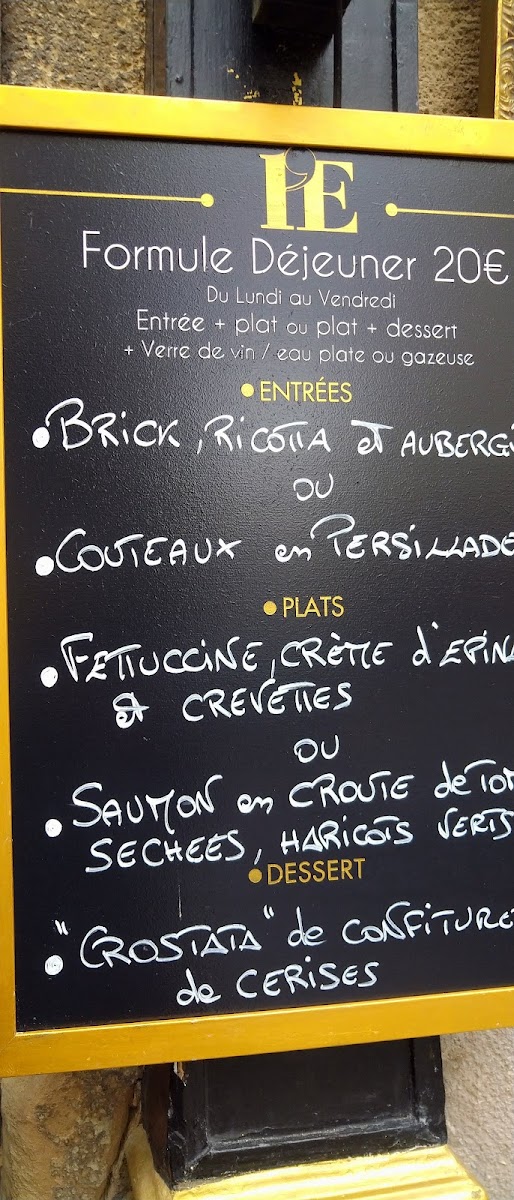 l'E
Formule Déjeuner 20€
Du Lundi au Vendredi
Entrée + plat ou plat + dessert
+ Verre de vin / eau plate ou gazeuse
• ENTRÉES
• BRICK, RICOTTA et AUBERGI
OU
• COUTEAUX en PERSILLADE
• PLATS
• FETTUCCINE, CRÈME d'EPINA
et CREVETTES
OU
• SAUMON en CROUTE de TOM
SECHEES, HARICOTS VERTS
• DESSERT
• "CROSTATA" de CONFITURE
de CERISES